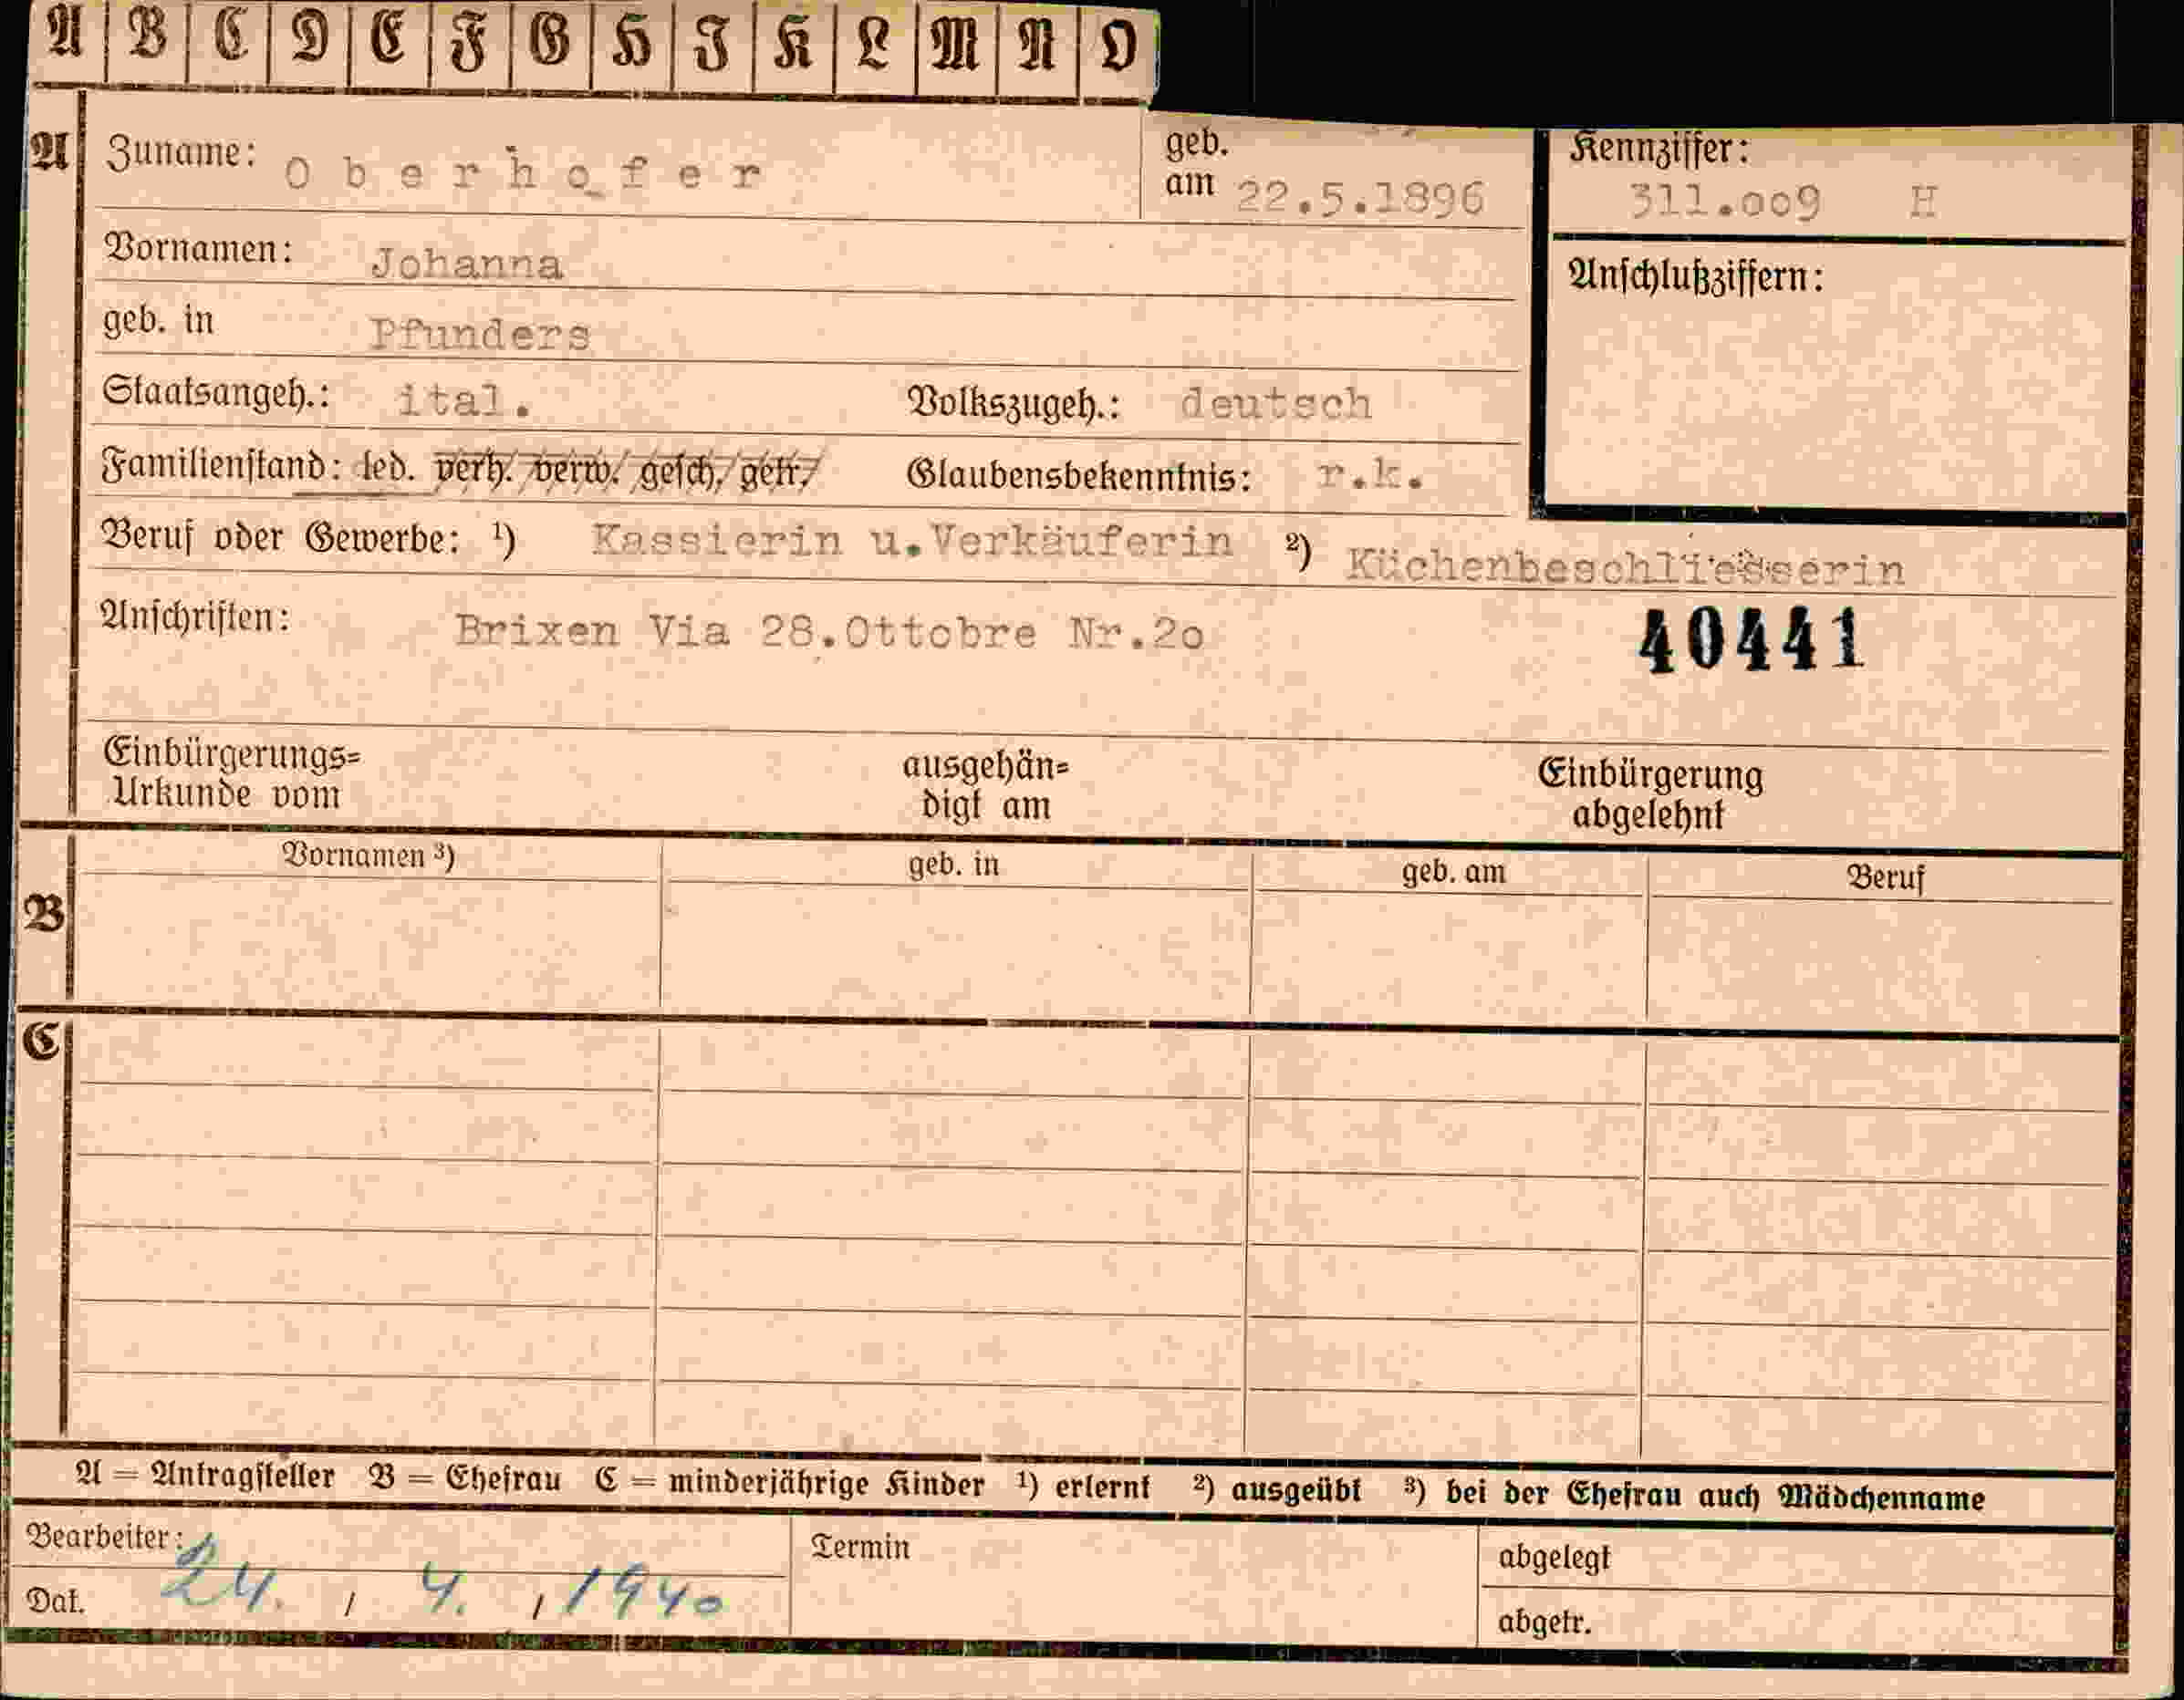 A B C D E F G H I K L M N O
A Zuname: Oberhofer geb. am 22.5.1896 Kennziffer: 311.oo9 H
Vornamen: Johanna Anschlußziffern:
geb. in Pfunders
Staatsangeh.: ital. Volkszugeh.: deutsch
Familienstand: led. verh. verw. gesch. getr. Glaubensbekenntnis: r.k.
Beruf oder Gewerbe: ¹) Kassierin u.Verkäuferin ²) Küchenbeschliesserin
Anschriften: Brixen Via 28.Ottobre Nr.2o 40441
Einbürgerungs= ausgehän= Einbürgerung
Urkunde vom digt am abgelehnt
Vornamen ³) geb. in geb. am Beruf
B
C
A = Antragsteller B = Ehefrau C = minderjährige Kinder ¹) erlernt ²) ausgeübt ³) bei der Ehefrau auch Mädchenname
Bearbeiter: Termin abgelegt
Dat. 24. / 4. / 1940 abgetr.